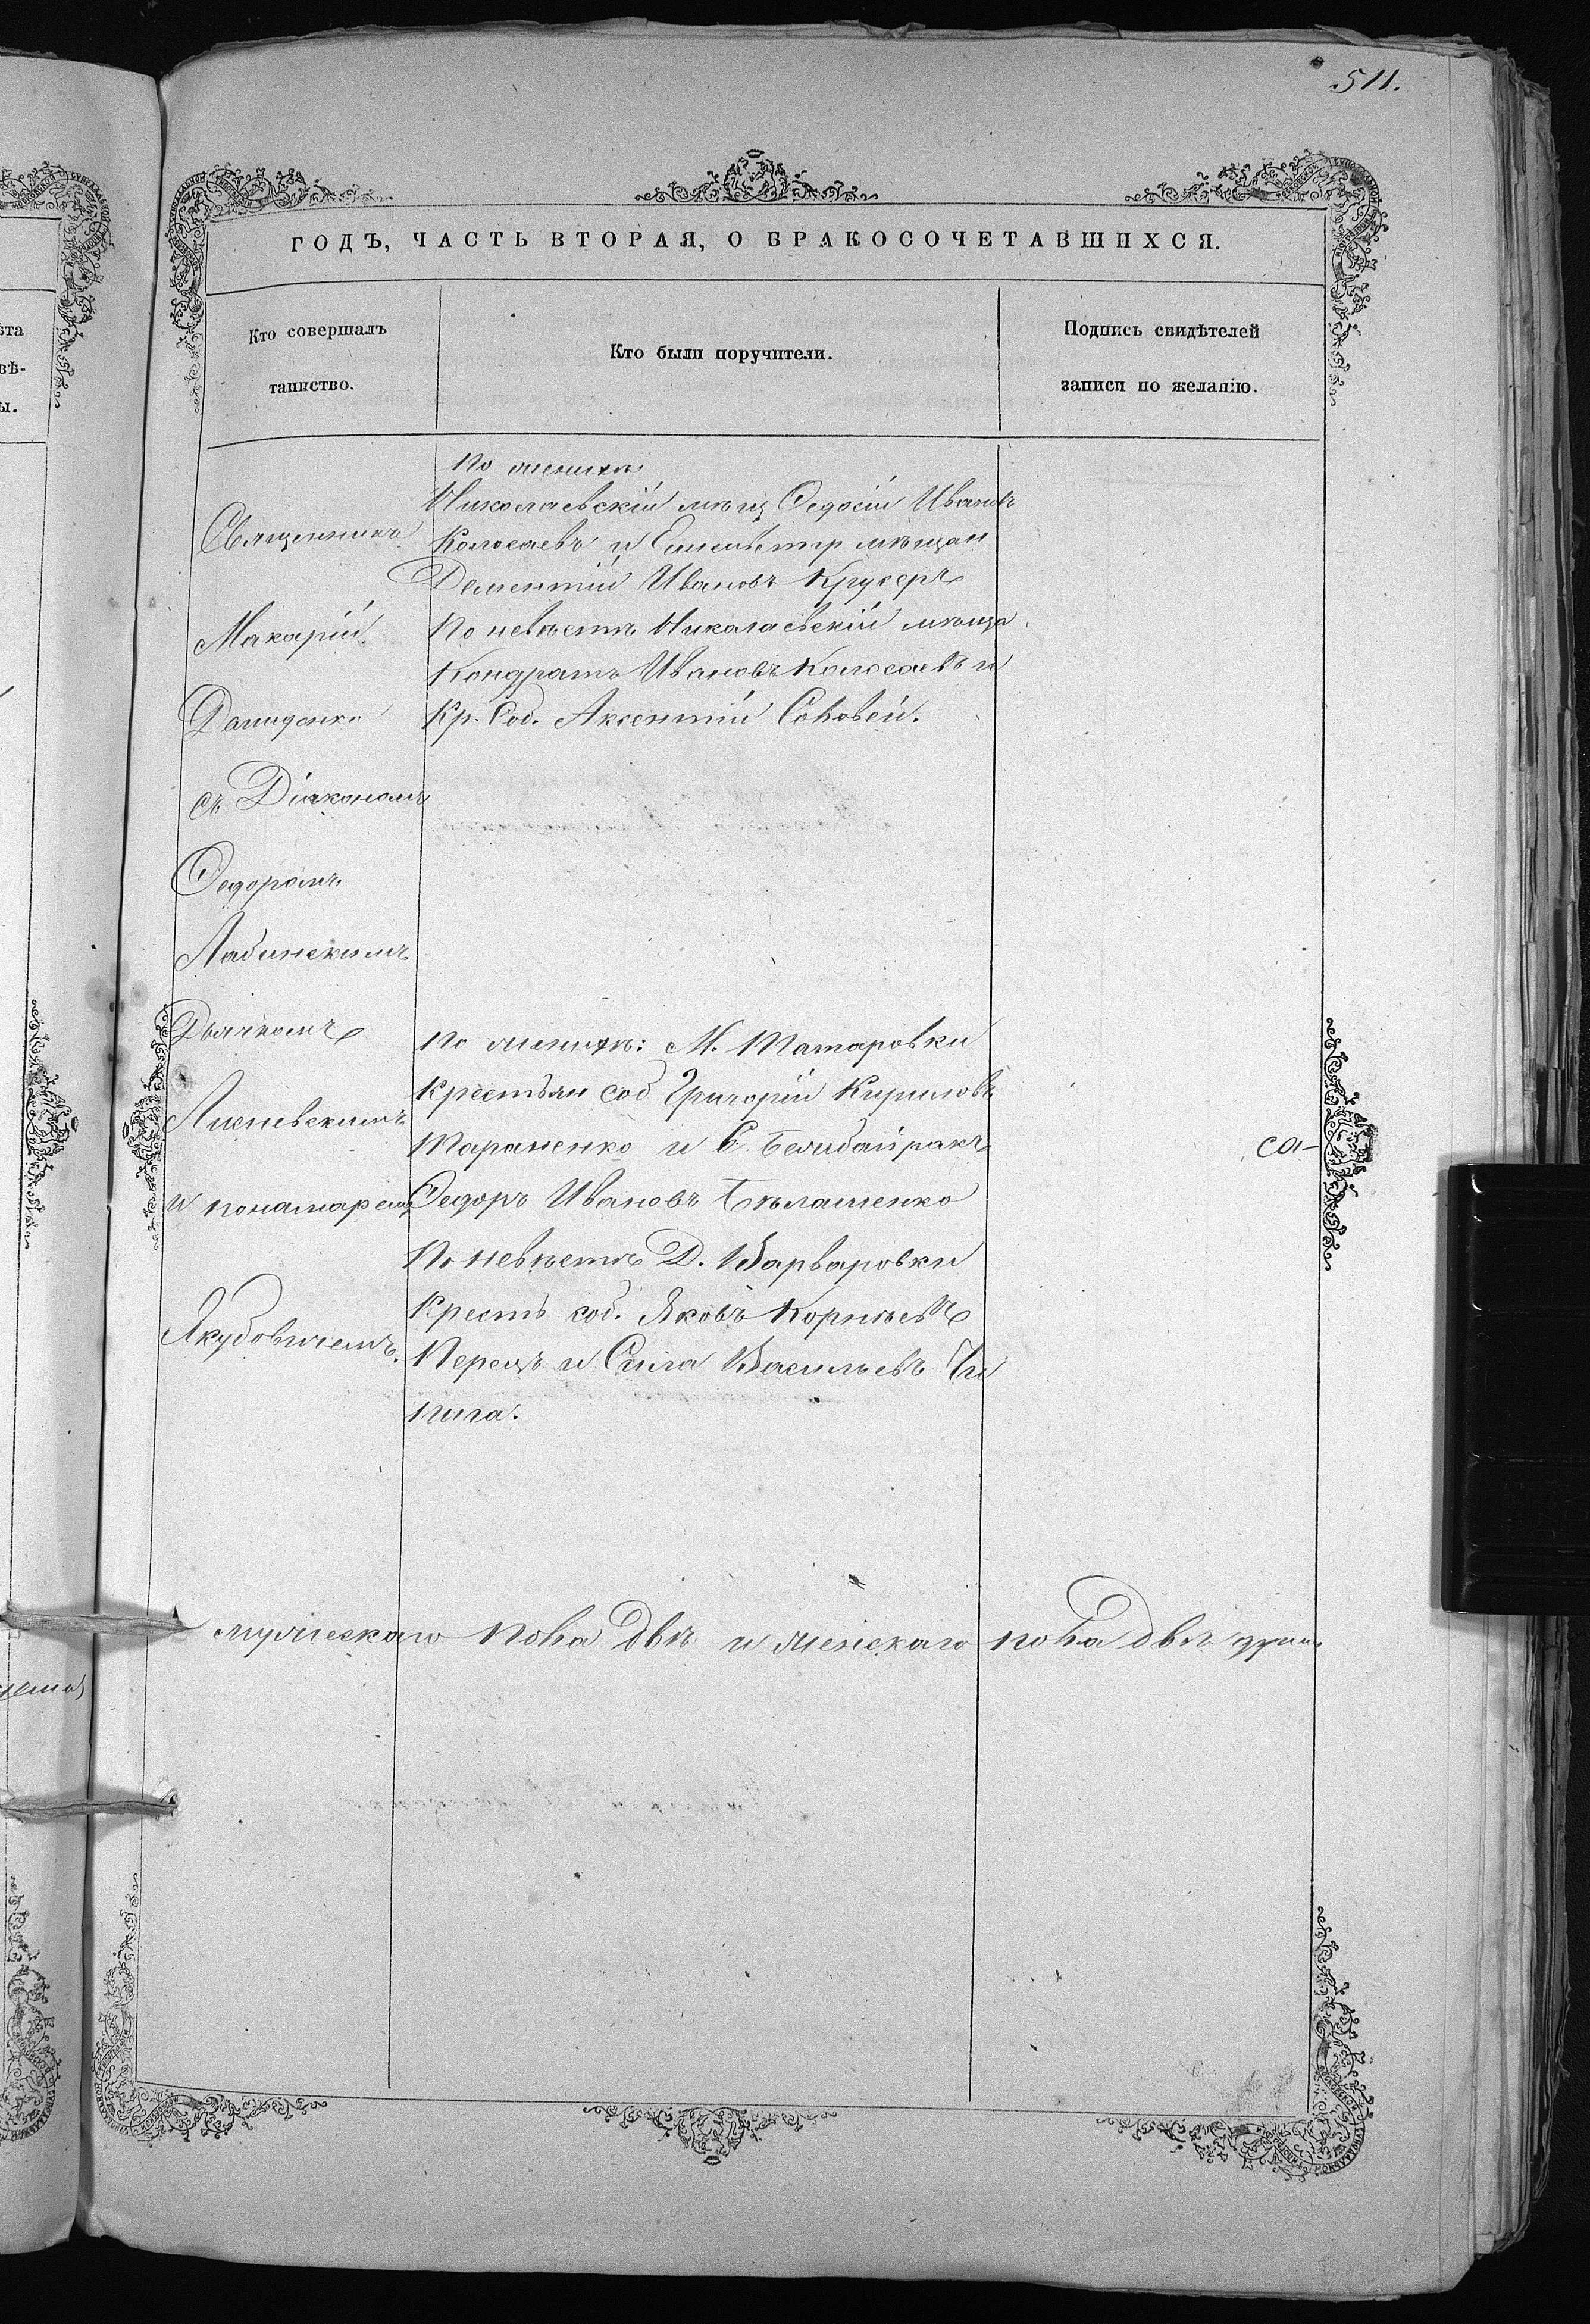 511.
ГОДЪ, ЧАСТЬ ВТОРАЯ, О БРАКОСОЧЕТАВШИХСЯ.
Кто совершалъ
таинство.
Кто были поручители.
Подпись свидѣтелей
записи по желанію.
Священникъ
Макарій
Давиденко
съ Діакономъ
Ѳедоромъ
Лабинскимъ
Дьячкомъ
и понамаремъ
Якубовичемъ.
По женихѣ
Николаевскій мѣщ Ѳедосій Ивановъ
Колосаевъ и мѣщан
Дементій Ивановъ
По невѣстѣ Николаевскій мѣща
Кондратъ Ивановъ Колосаевъ и
Кр. Соб. Аксентій Соловей.
По женихѣ: М. Татаровки
Крестьян соб Григорій Кириловъ
Тараненко и С. Белибайракъ
Ѳедоръ Ивановъ Бѣлашенко
По невѣстѣ Д. Варваровки
Кресть соб. Яковъ Корнѣевъ
Перецъ и Сила Васильевъ Чи
пига.
са-
мужескаго пола двѣ и женскаго пола двѣ души